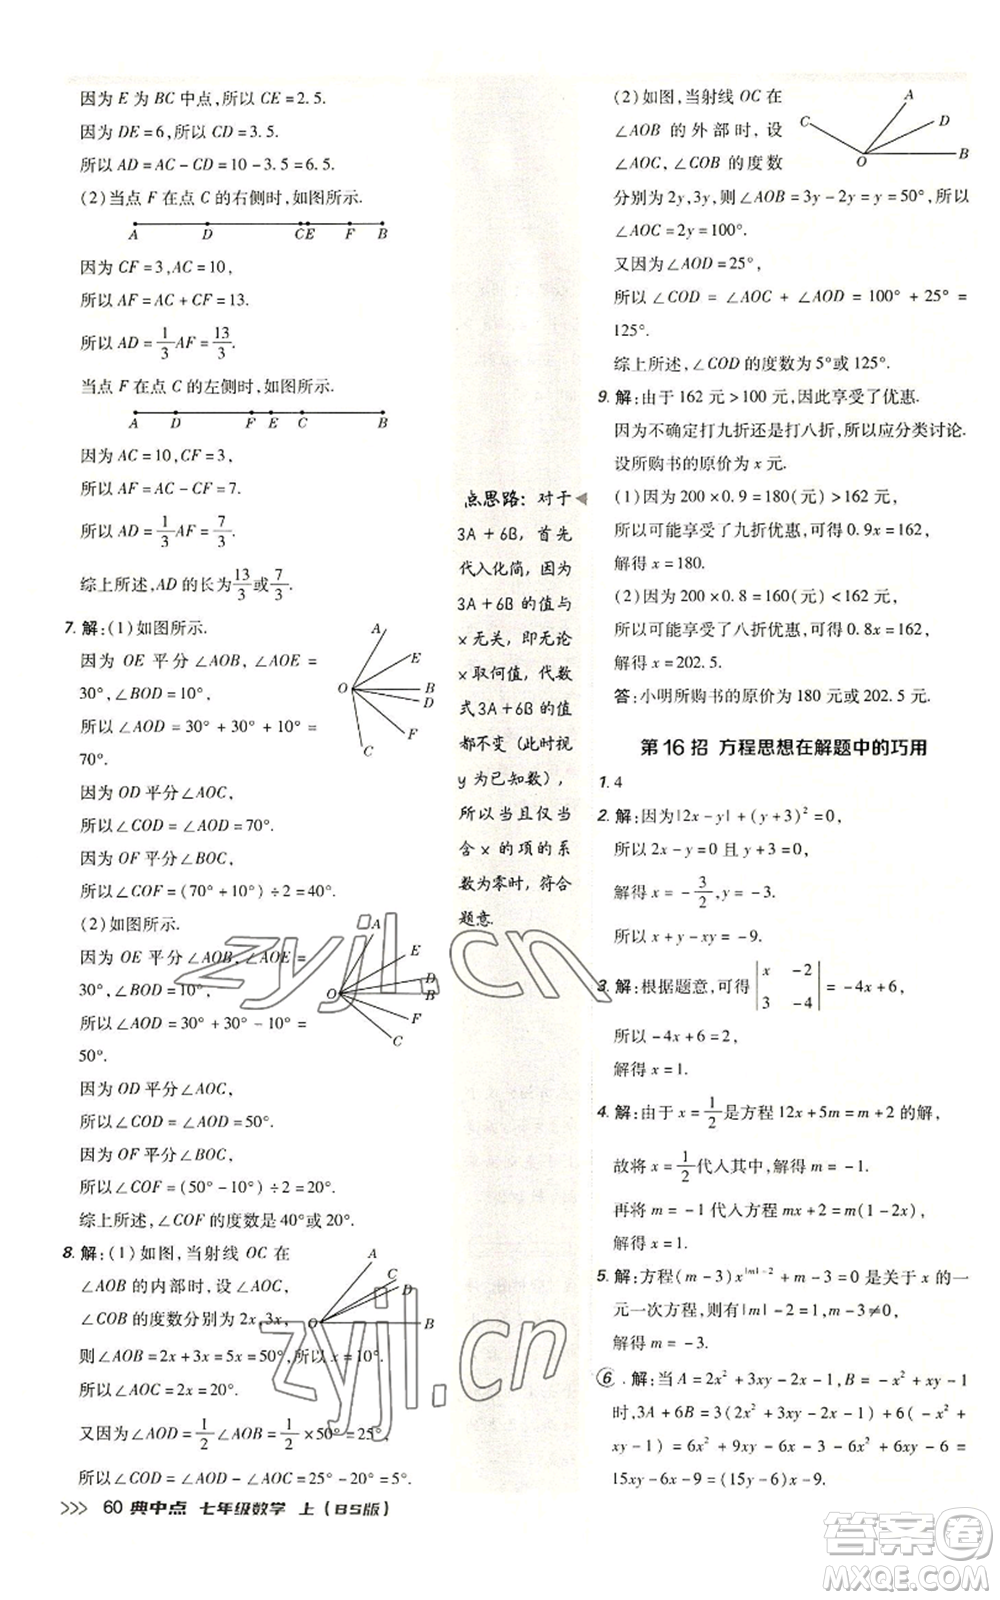 因为 E 为 BC 中点,所以 CE=2.5.
因为 DE=6,所以 CD=3.5.
所以 AD=AC-CD=10-3.5=6.5.
(2)当点 F 在点 C 的右侧时,如图所示.
A D CE F B
因为 CF=3,AC=10,
所以 AF=AC+CF=13.
所以 AD=1/3AF=13/3.
当点 F 在点 C 的左侧时,如图所示.
A D F E C B
因为 AC=10,CF=3,
所以 AF=AC-CF=7.
所以 AD=1/3AF=7/3.
综上所述,AD 的长为13/3或7/3.
7. 解:(1)如图所示.
因为 OE 平分∠AOB,∠AOE=
30°,∠BOD=10°,
所以∠AOD=30°+30°+10°=
70°.
A E O B D F C
因为 OD 平分∠AOC,
所以∠COD=∠AOD=70°.
因为 OF 平分∠BOC,
所以∠COF=(70°+10°)÷2=40°.
(2)如图所示.
因为 OE 平分∠AOB,∠AOE=
30°,∠BOD=10°,
所以∠AOD=30°+30°-10°=
50°.
A E D O B F C
因为 OD 平分∠AOC,
所以∠COD=∠AOD=50°.
因为 OF 平分∠BOC,
所以∠COF=(50°-10°)÷2=20°.
综上所述,∠COF 的度数是40°或20°.
8. 解:(1)如图,当射线 OC 在
∠AOB 的内部时,设∠AOC,
∠COB 的度数分别为 2x,3x,
则∠AOB=2x+3x=5x=50°,所以 x=10°.
A C D O B
所以∠AOC=2x=20°.
又因为∠AOD=1/2∠AOB=1/2×50°=25°,
所以∠COD=∠AOD-∠AOC=25°-20°=5°.
>>> 60 典中点 七年级数学 上(BS版)
点思路:对于
3A+6B,首先
代入化简,因为
3A+6B 的值与
x 无关,即无论
x 取何值,代数
式3A+6B 的值
都不变(此时视
y 为已知数),
所以当且仅当
含 x 的项的系
数为零时,符合
题意.
(2)如图,当射线 OC 在
∠AOB 的外部时,设
∠AOC,∠COB 的度数
A C D O B
分别为 2y,3y,则∠AOB=3y-2y=y=50°,所以
∠AOC=2y=100°.
又因为∠AOD=25°,
所以∠COD=∠AOC+∠AOD=100°+25°=
125°.
综上所述,∠COD 的度数为5°或125°.
9. 解:由于 162 元>100 元,因此享受了优惠.
因为不确定打九折还是打八折,所以应分类讨论.
设所购书的原价为 x 元.
(1)因为 200×0.9=180(元)>162 元,
所以可能享受了九折优惠,可得 0.9x=162,
解得 x=180.
(2)因为 200×0.8=160(元)<162 元,
所以可能享受了八折优惠,可得 0.8x=162,
解得 x=202.5.
答:小明所购书的原价为 180 元或 202.5 元.
第16招 方程思想在解题中的巧用
1. 4
2. 解:因为|2x-y|+(y+3)²=0,
所以 2x-y=0 且 y+3=0,
解得 x=-3/2,y=-3.
所以 x+y-xy=-9.
3. 解:根据题意,可得 |x -2; 3 -4| =-4x+6,
所以-4x+6=2,
解得 x=1.
4. 解:由于 x=1/2是方程 12x+5m=m+2 的解,
故将 x=1/2代入其中,解得 m=-1.
再将 m=-1 代入方程 mx+2=1-2x,
解得 x=1.
5. 解:方程(m-3)x^(|m|-2)+m-3=0 是关于 x 的一
元一次方程,则有|m|-2=1,m-3≠0,
解得 m=-3.
⑥. 解:当 A=2x²+3xy-2x-1,B=-x²+xy-1
时,3A+6B=3(2x²+3xy-2x-1)+6(-x²+
xy-1)=6x²+9xy-6x-3-6x²+6xy-6=
15xy-6x-9=(15y-6)x-9.
zyjl.cn
zyjl.cn
答案圈
MXQE.COM